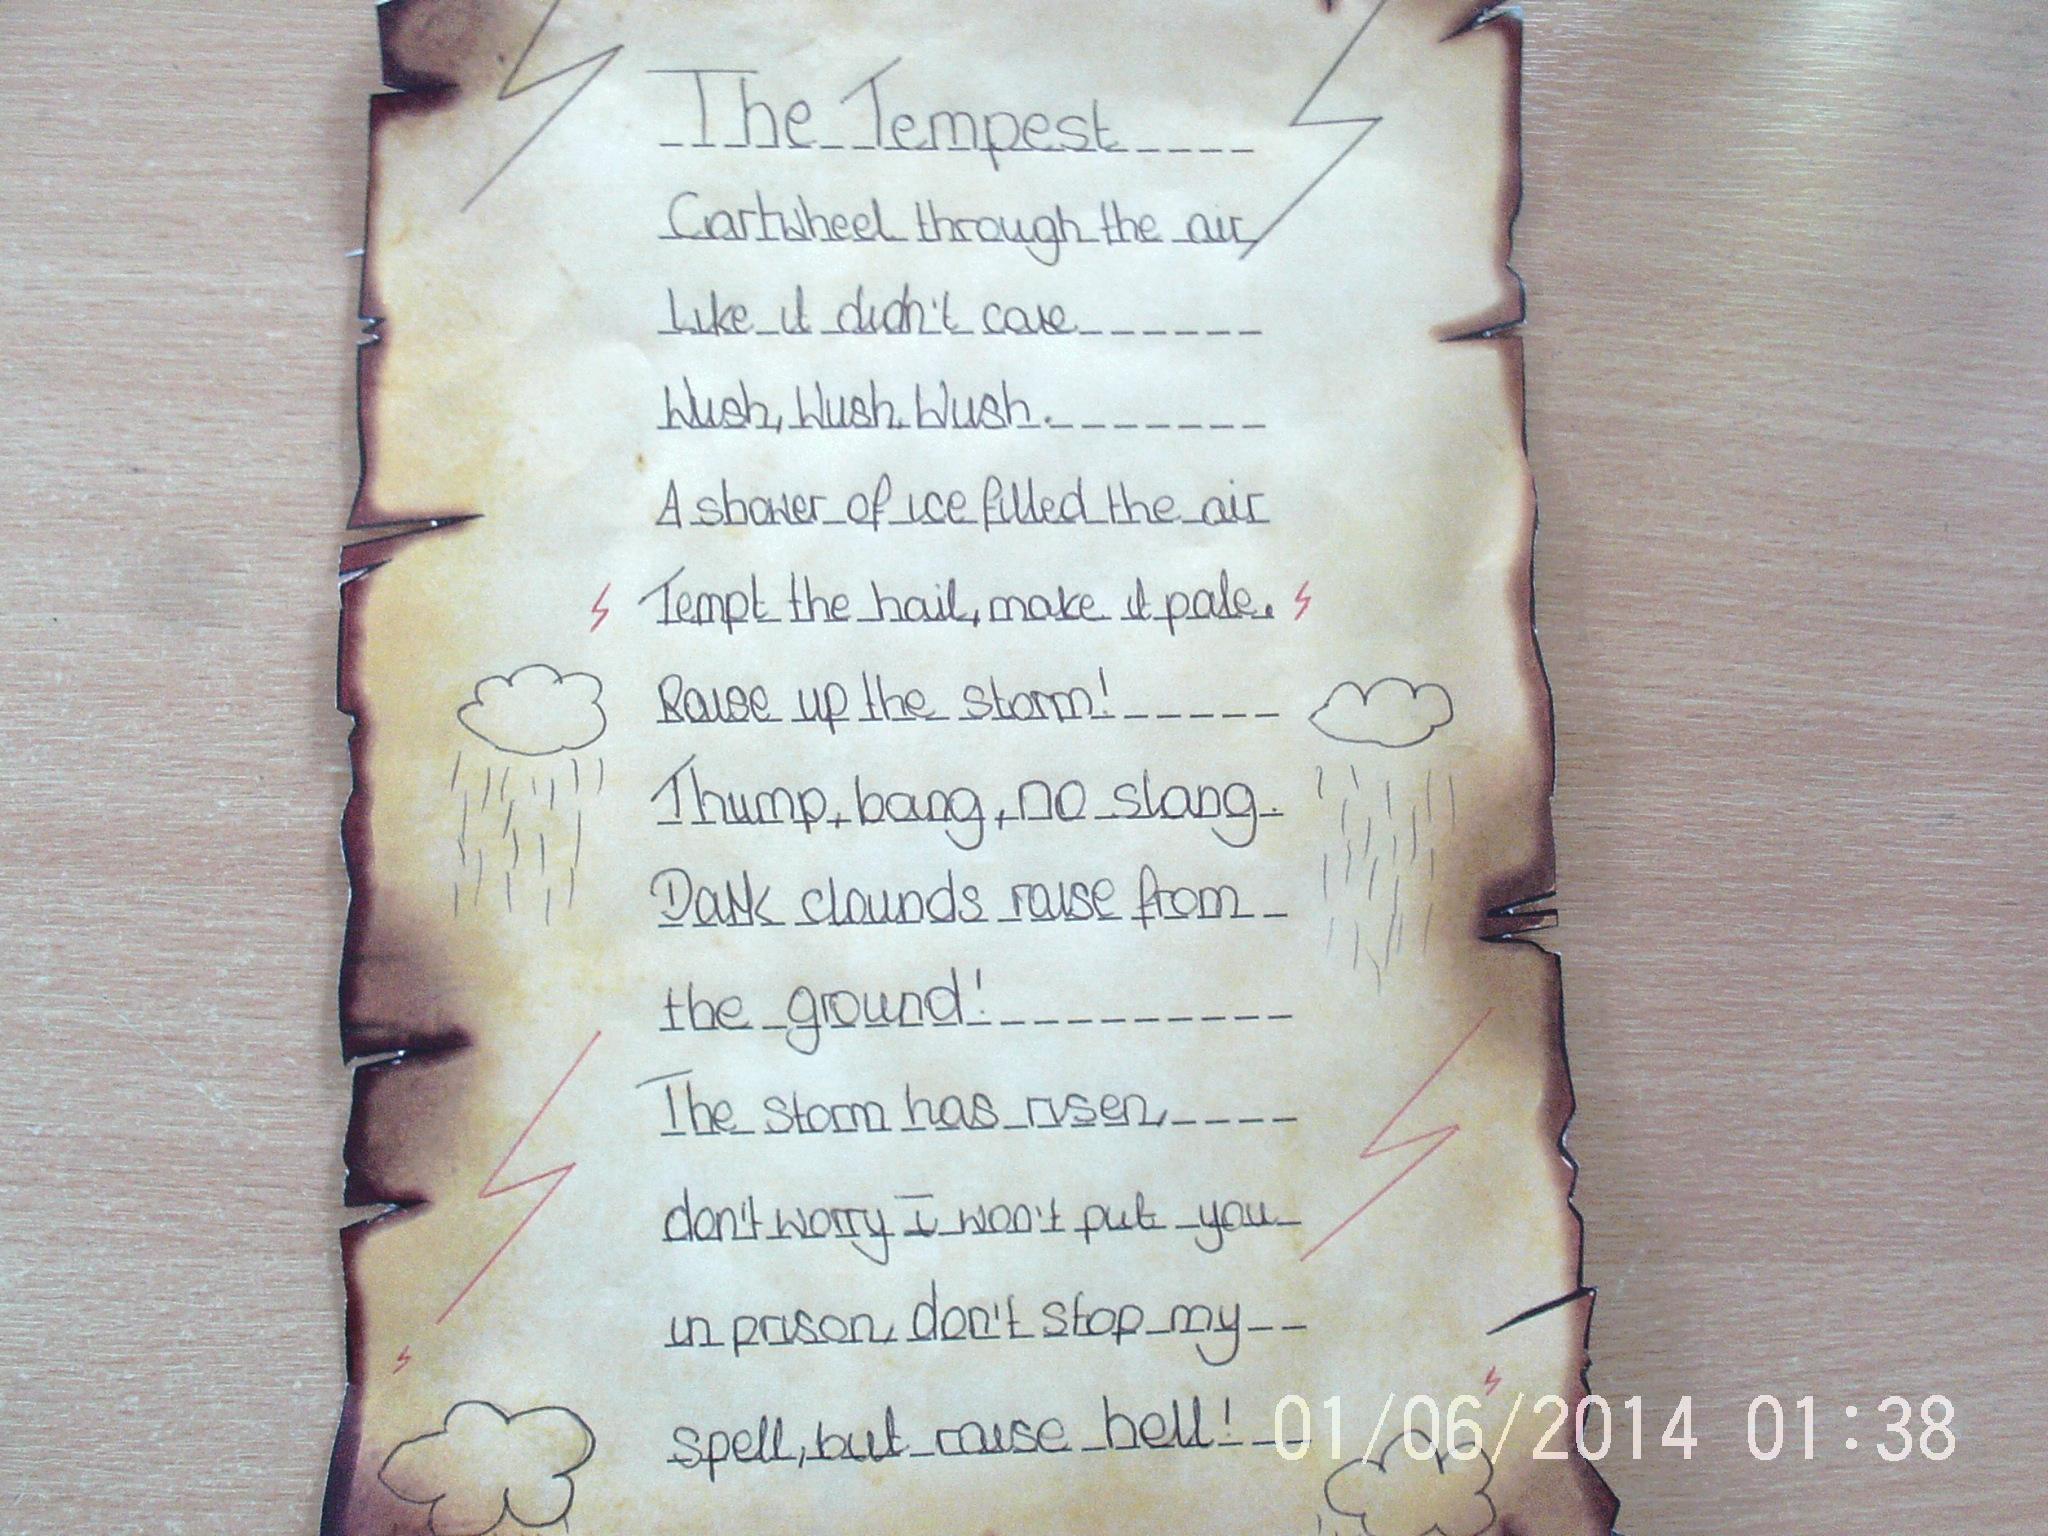 The Tempest
Cartwheel through the air
Like it didn't care
Wush, Wush Wush.
A shower of ice filled the air
Tempt the hail, make it pale.
Raise up the storm!
Thump, bang, no slang.
Dark clounds raise from
the ground!
The storm has risen,
don't worry I won't put you
in prison, don't stop my
spell, but raise hell!
01/06/2014 01:38